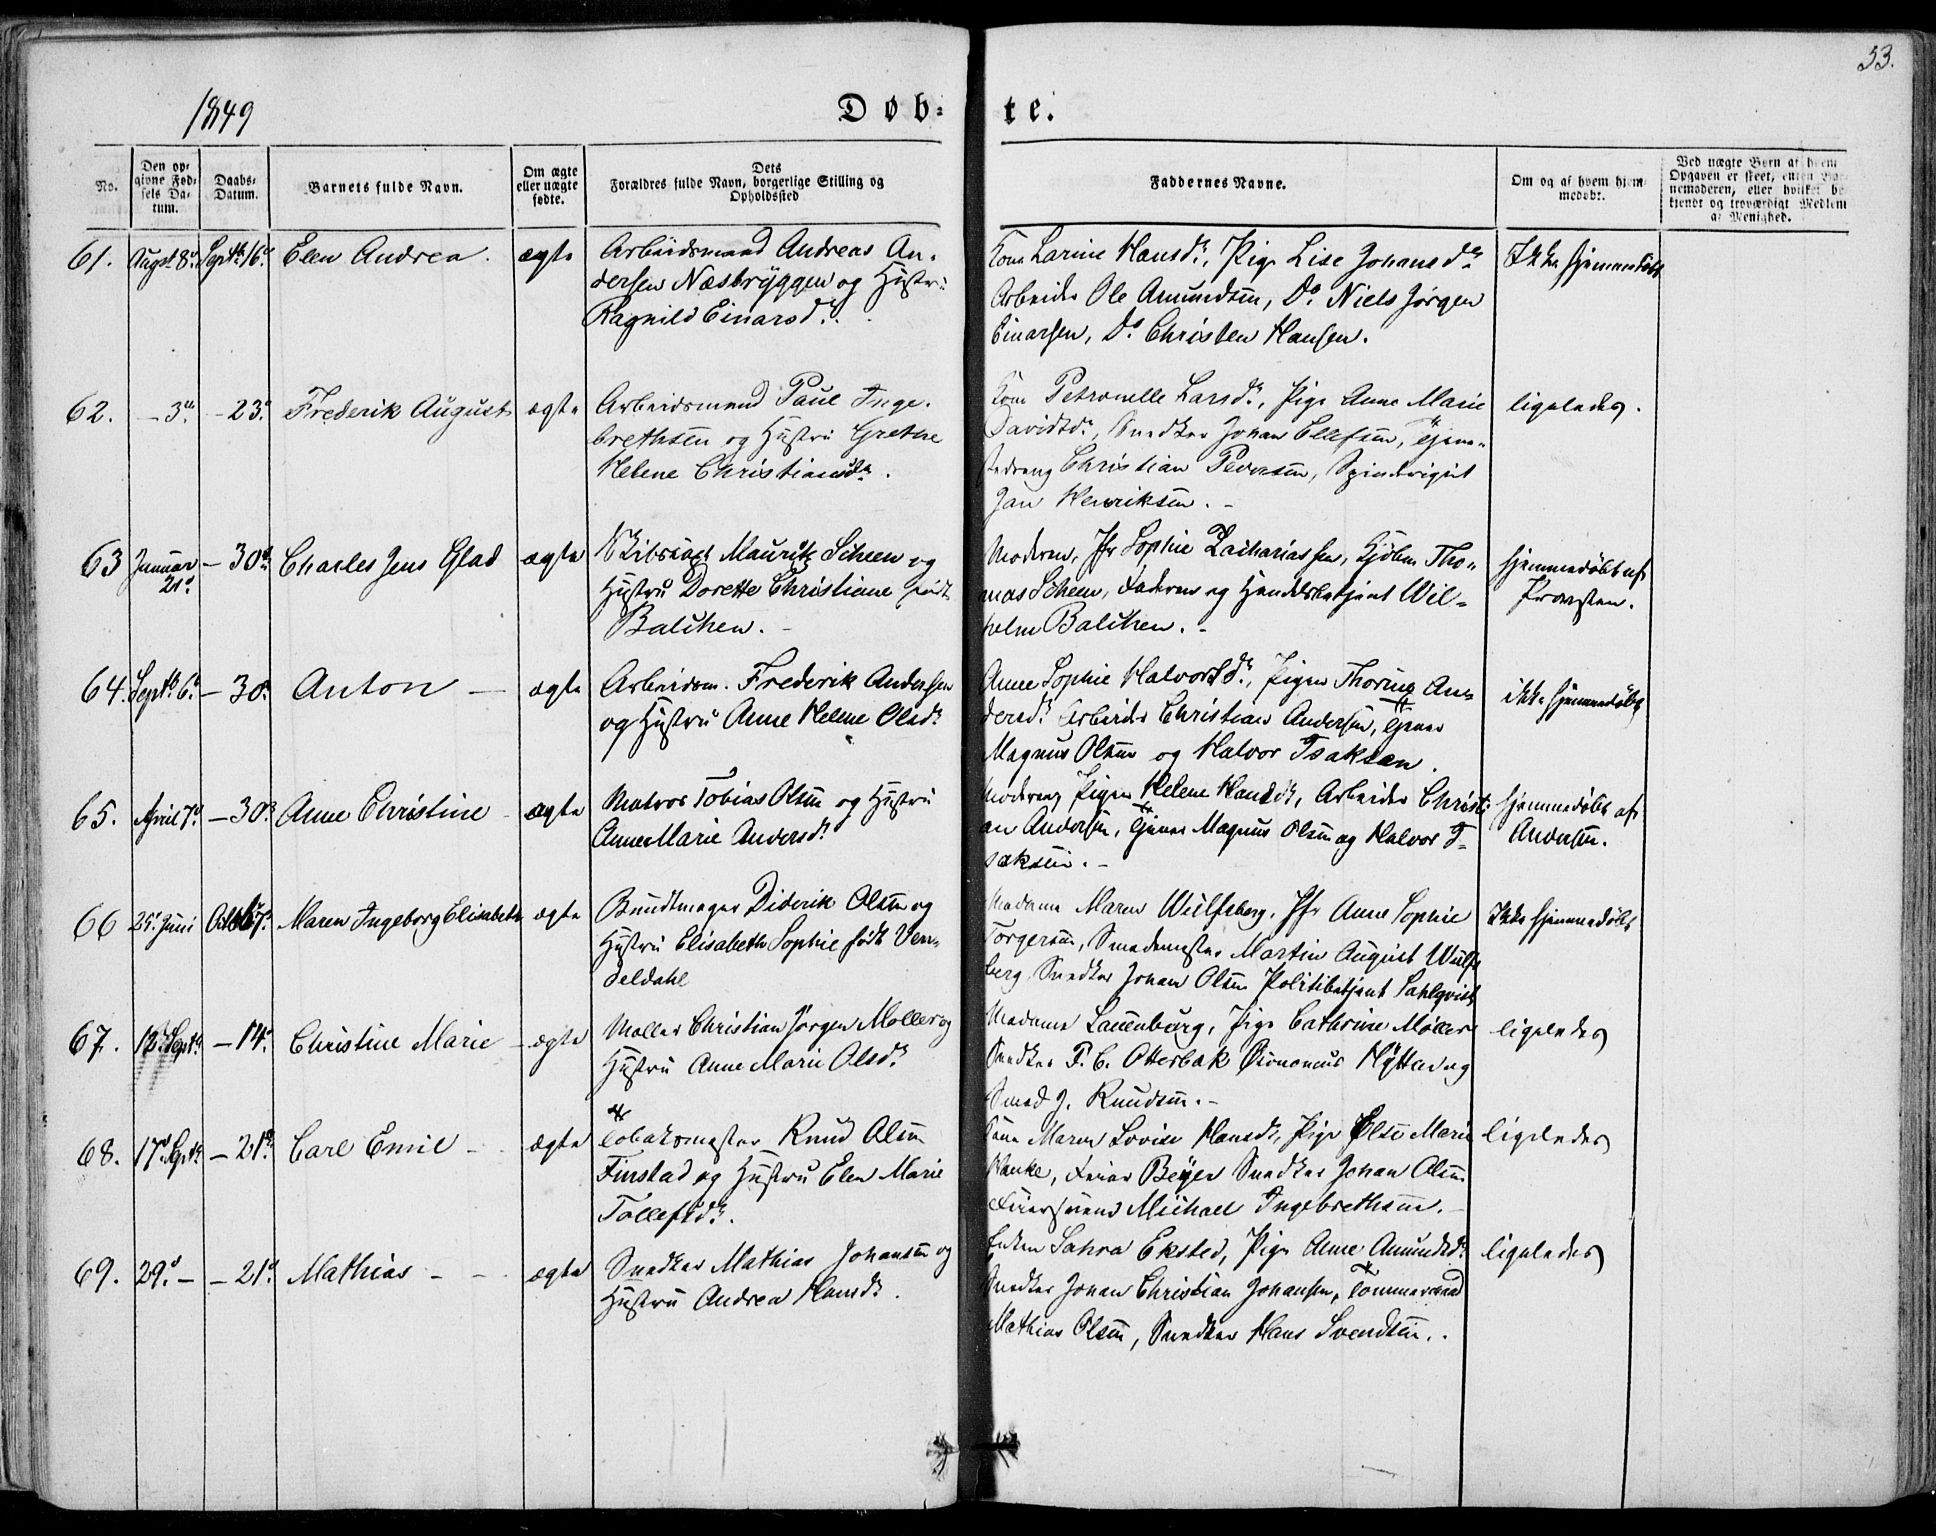 53.
1849
Døb-
te.
No.
Den op-
givne Fød-
sels Da-
tum.
Daabs-
Datum.
Barnets fulde Navn.
Om ægte
eller uægte
fødte.
Dets
Forældres fulde Navn, borgerlige Stilling og
Opholdssted
Faddernes Navne.
Om og af hvem hjem-
medøbt.
Ved uægte Børn af hvem
Opgaven er skeet, enten Bar-
nemoderen, eller hvilket be-
kjendt og troværdigt Medlem
af Menighed.
61. Augst 8de Septbr 16de Elen Andrea. ægte
Arbeidsmand Andreas An-
dersen Næsbryggen og Hustru
Ragnild Einarsdr.
Kone Larine Hansdr, Pige Lise Johansdr
Arbeider Ole Amundsen, Do Niels Jørgen
Einarsen, Do Christen Hansen.
Ikke hjemmedøbt
62. - 3die - 23de Frederik August ægte
Arbeidsmand Paul Inge-
brethsen og Hustru Grethe
Helene Christiansdr.
Kone Petronelle Larsdr, Pige Anne Marie
Davidsdr, Snedker Johan Ellefsen, Tjene-
stedreng Christian Pedersen,
Jan Henriksen. -
ligeledes.
63 Januar
21de - 30de Charles Jens Glad ægte
Maurik Scheen og
Hustru Dorette Christiane født
Balchen. -
Moderen, Jfr Sophie Zachariassen, Kjøbm Tho-
mas Scheen, Faderen og Handelsbetjent Wil-
helm Balchen. -
hjemmedøbt af
Provsten.
64. Septbr 6te - 30te Anton - ægte
Arbeidsm. Frederik Andersen
og Hustru Anne Helene Olsdr
Anne Sophie Halvorsdr, Pigen Thorine An-
dersdr Arbeider Christian Andersen, Tjener
Magnus Olsen og Halvor Isaksen.
ikke hjemmedøbt
65. April 7de - 30te Anne Christine - ægte
Matros Tobias Olsen og Hustru
Anne Marie Andersdr
Moderen, Pigen Helene Hansdr, Arbeider Christi-
an Andersen, Tjener Magnus Olsen og Halvor I-
saksen. -
hjemmedøbt af
Andersen.
66 25de Juni Octbr 7de Maren Ingeborg Elisabeth ægte
Bundtmager Diderik Olsen og
Hustru Elisabeth Sophie født Ven-
deldahl
Madame Maren Wulfsberg, Jfr Anne Sophie
Torgersen, Smedemester Martin August Wulfs
berg, Snedker Johan Olsen Politibetjent Sahlqvist
Ikke hjemmedøbt
67. 12te Septbr - 14de Christine Marie - ægte
Møller Christian Jørgen Møller og
Hustru Anne Marie Olsdr
Madame Lauenborg, Pige Cathrine Møller
Snedker P. C. Otterbak Øconomus Hytten og
Smed J. Knudsen. -
ligeledes
68. 17de Septbr - 21de Carl Emil - ægte
Tobaksmester Knud Olsen
Finstad og Hustru Elen Marie
Tollefsdr.
Kone Maren Lovise Hansdr, Pige Olse Marie
Hanke, Feier Beyer Snedker Johan Olsen
Feiersvend Michael Ingebrethsen. -
ligeledes
69. 29de - - 21de Mathias - - ægte
Snedker Mathias Johansen og
Hustru Andrea Hansdr.
Enken Sahra Eksted, Pige Anne Amundsdr
Snedker Johan Christian Johansen, Tømmermand
Mathias Olsen, Snedker Hans Svendsen.
ligeledes